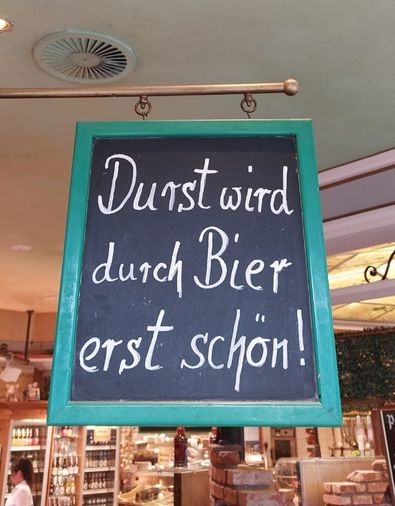 Durst wird
durch Bier
erst schön!